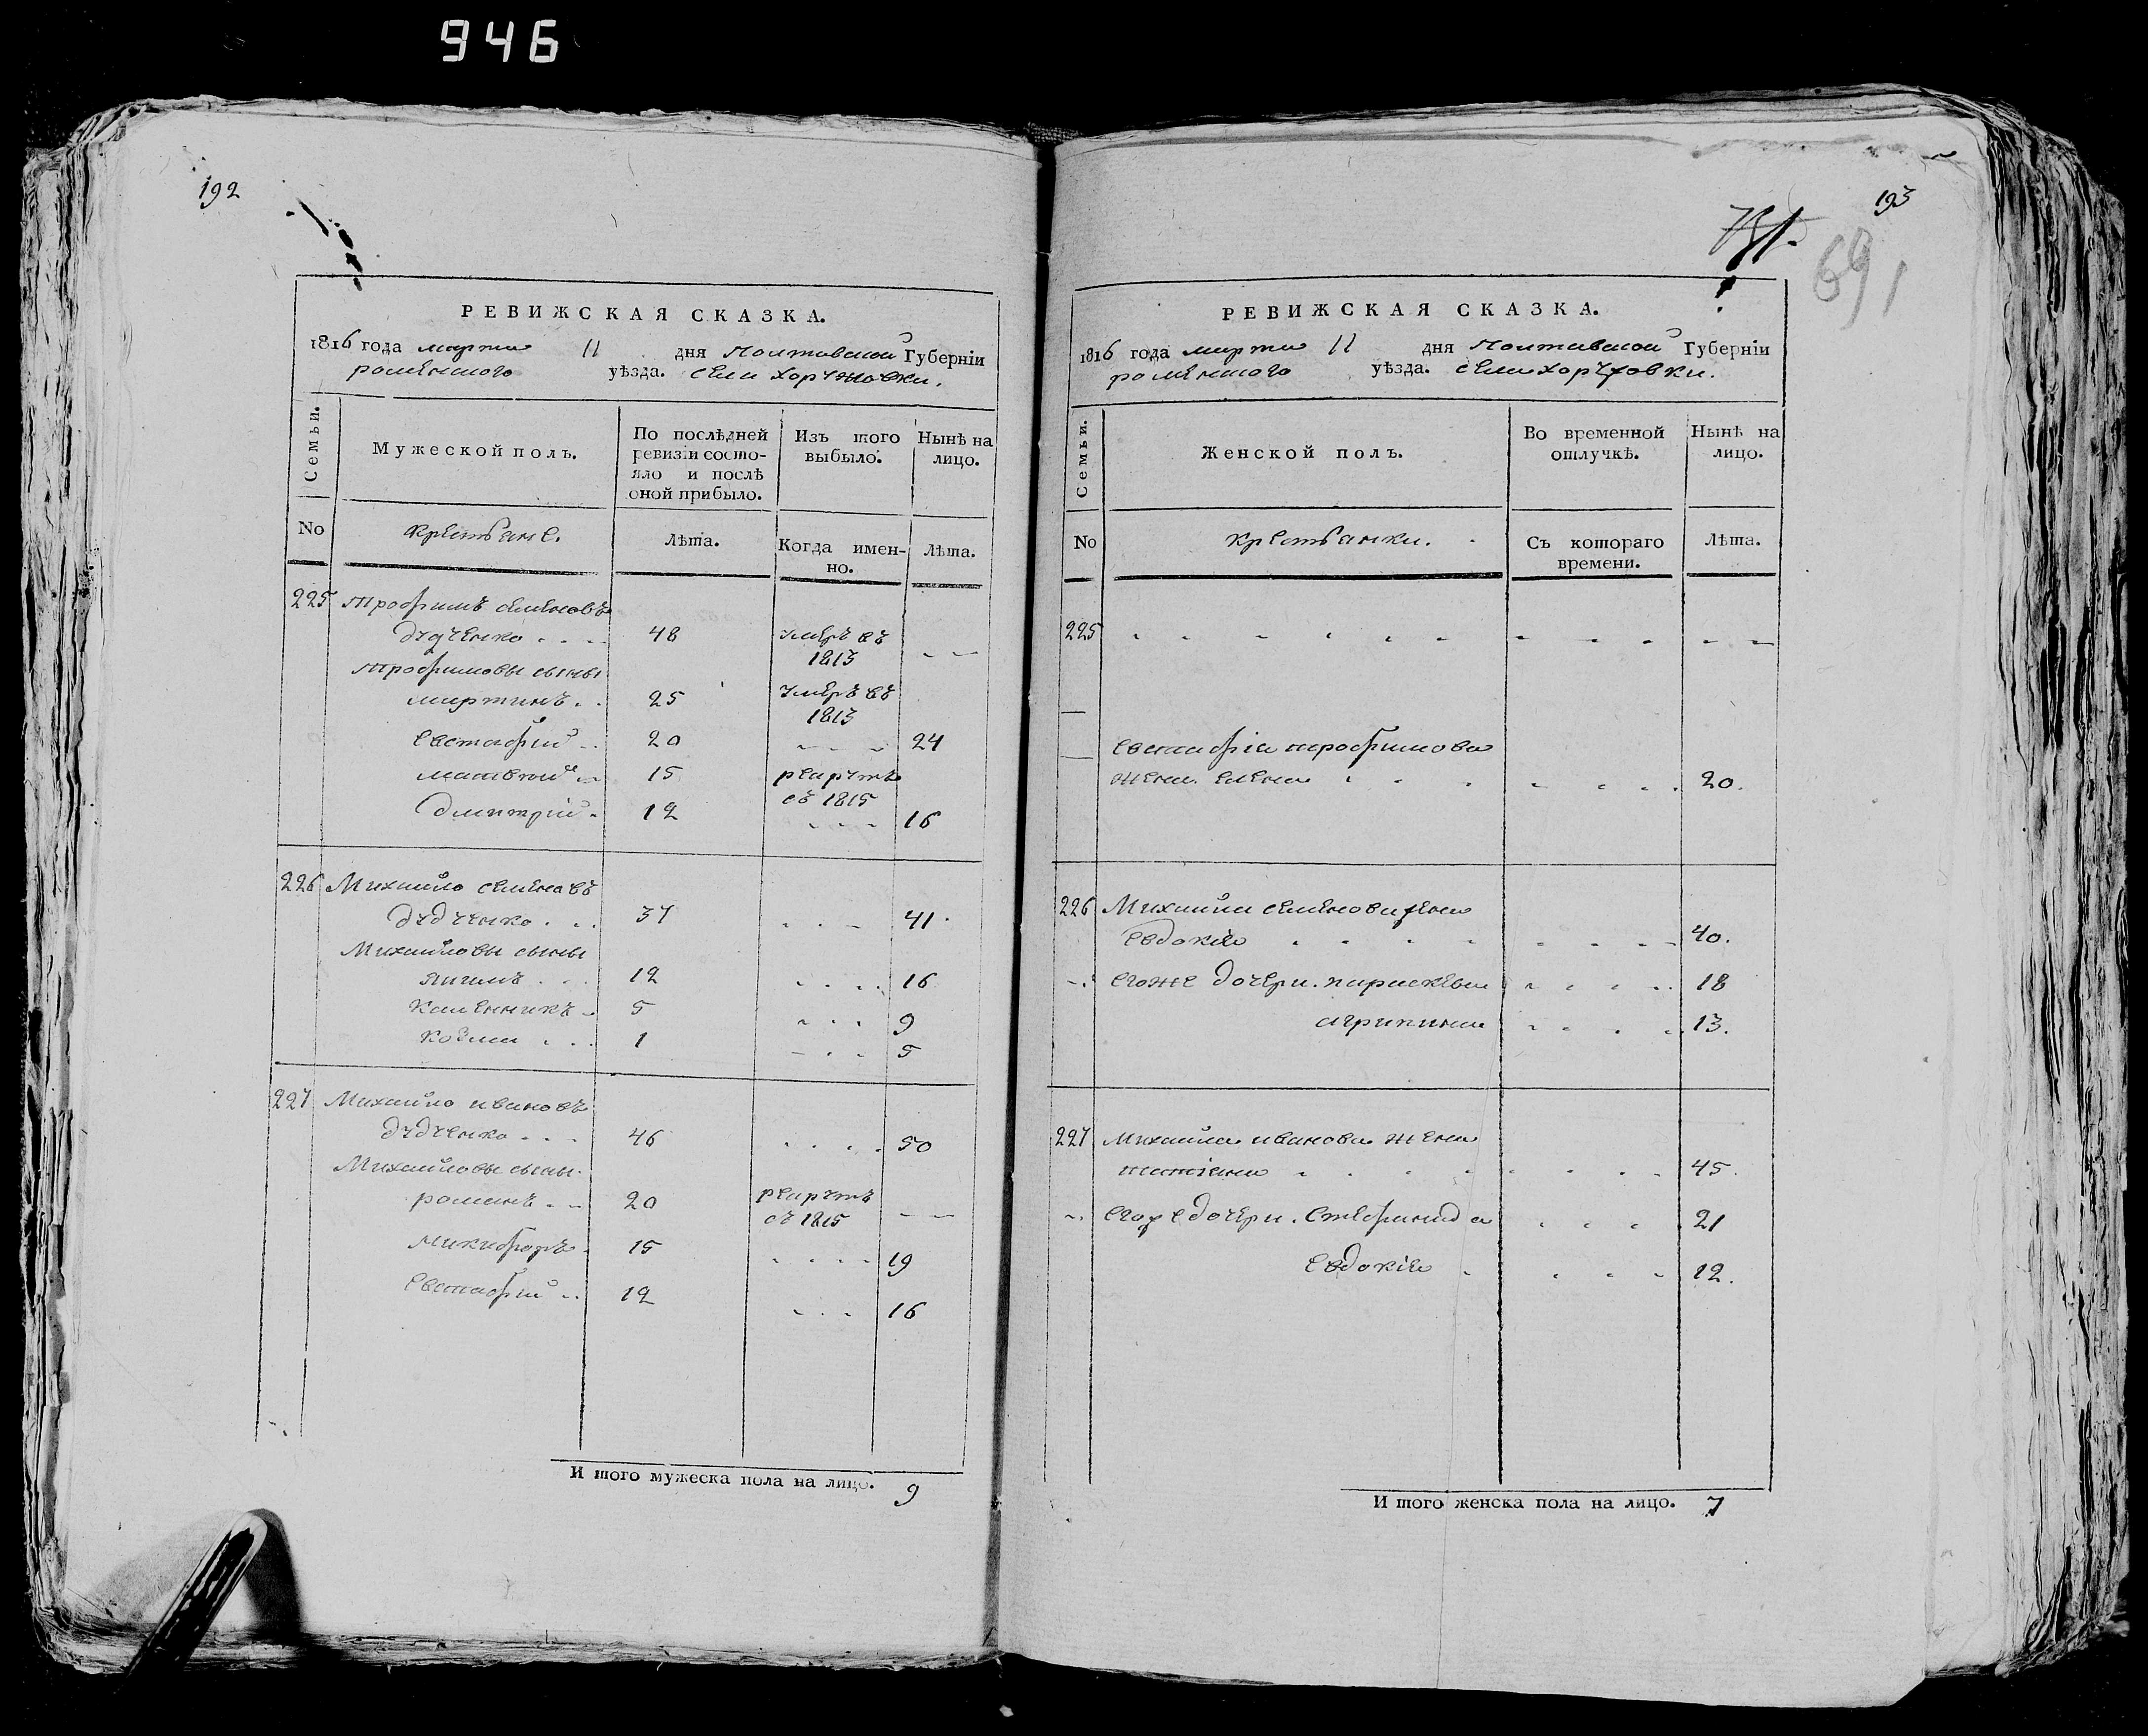 946
192
РЕВИЖСКАЯ СКАЗКА.
1816 года марта 11 дня Полтавской Губернїи
роменского уѣзда. села
Семьи.
Мужеской полъ.
По послѣдней ревизїи состояло и послѣ оной прибыло.
Изъ того выбыло.
Нынѣ на лицо.
No
Крестьяне.
Лѣта.
Когда имен-
но.
Лѣта.
225 Трофимъ семеновъ
дудченко . . . 48 умеръ въ
1813 — —
трофимовы сыны
мартинъ . . 25 умеръ въ
1813
евстафий . . 20 - - - 24
матвей . . 15 рекрутъ
съ 1815
дмитрїй . 12 - - - 16
226 Михайло семеновъ
дудченко . . . 37 . . - 41.
Михайловы сыны
12 . . . . 16
5 . . . 9
козма . . . 1 - . . 5
227 Михайло ивановъ
дудченко . . . 46 . . . . 50
Михайловы сыны.
романъ . . . 20 рекрутъ
съ 1815 — —
Микифоръ . 15 . . . . 19
евстафий . . 12 . . . 16
И того мужеска пола на лицо. 9
193
691
РЕВИЖСКАЯ СКАЗКА.
1816 года марта 11 дня Полтавской Губернїи
роменского уѣзда. села
Семьи.
Женской полъ.
Во временной отлучкѣ.
Нынѣ на лицо.
No
Крестьянки.
Съ котораго
времени.
Лѣта.
225 - - - - - - - - - — —
евстафїа трофимова
жена елена . . . . . . . 20.
226 Михайла семенова жена
евдокїа . . . . - - - - 40.
егоже дочери. параскевиа . . . . 18
агрипина . . . . 13.
227 Михайла иванова жена
татїана . . . . . . . . 45.
егоже дочери. Стефанида . . . 21
евдокїа . . . . 12.
И того женска пола на лицо. 7